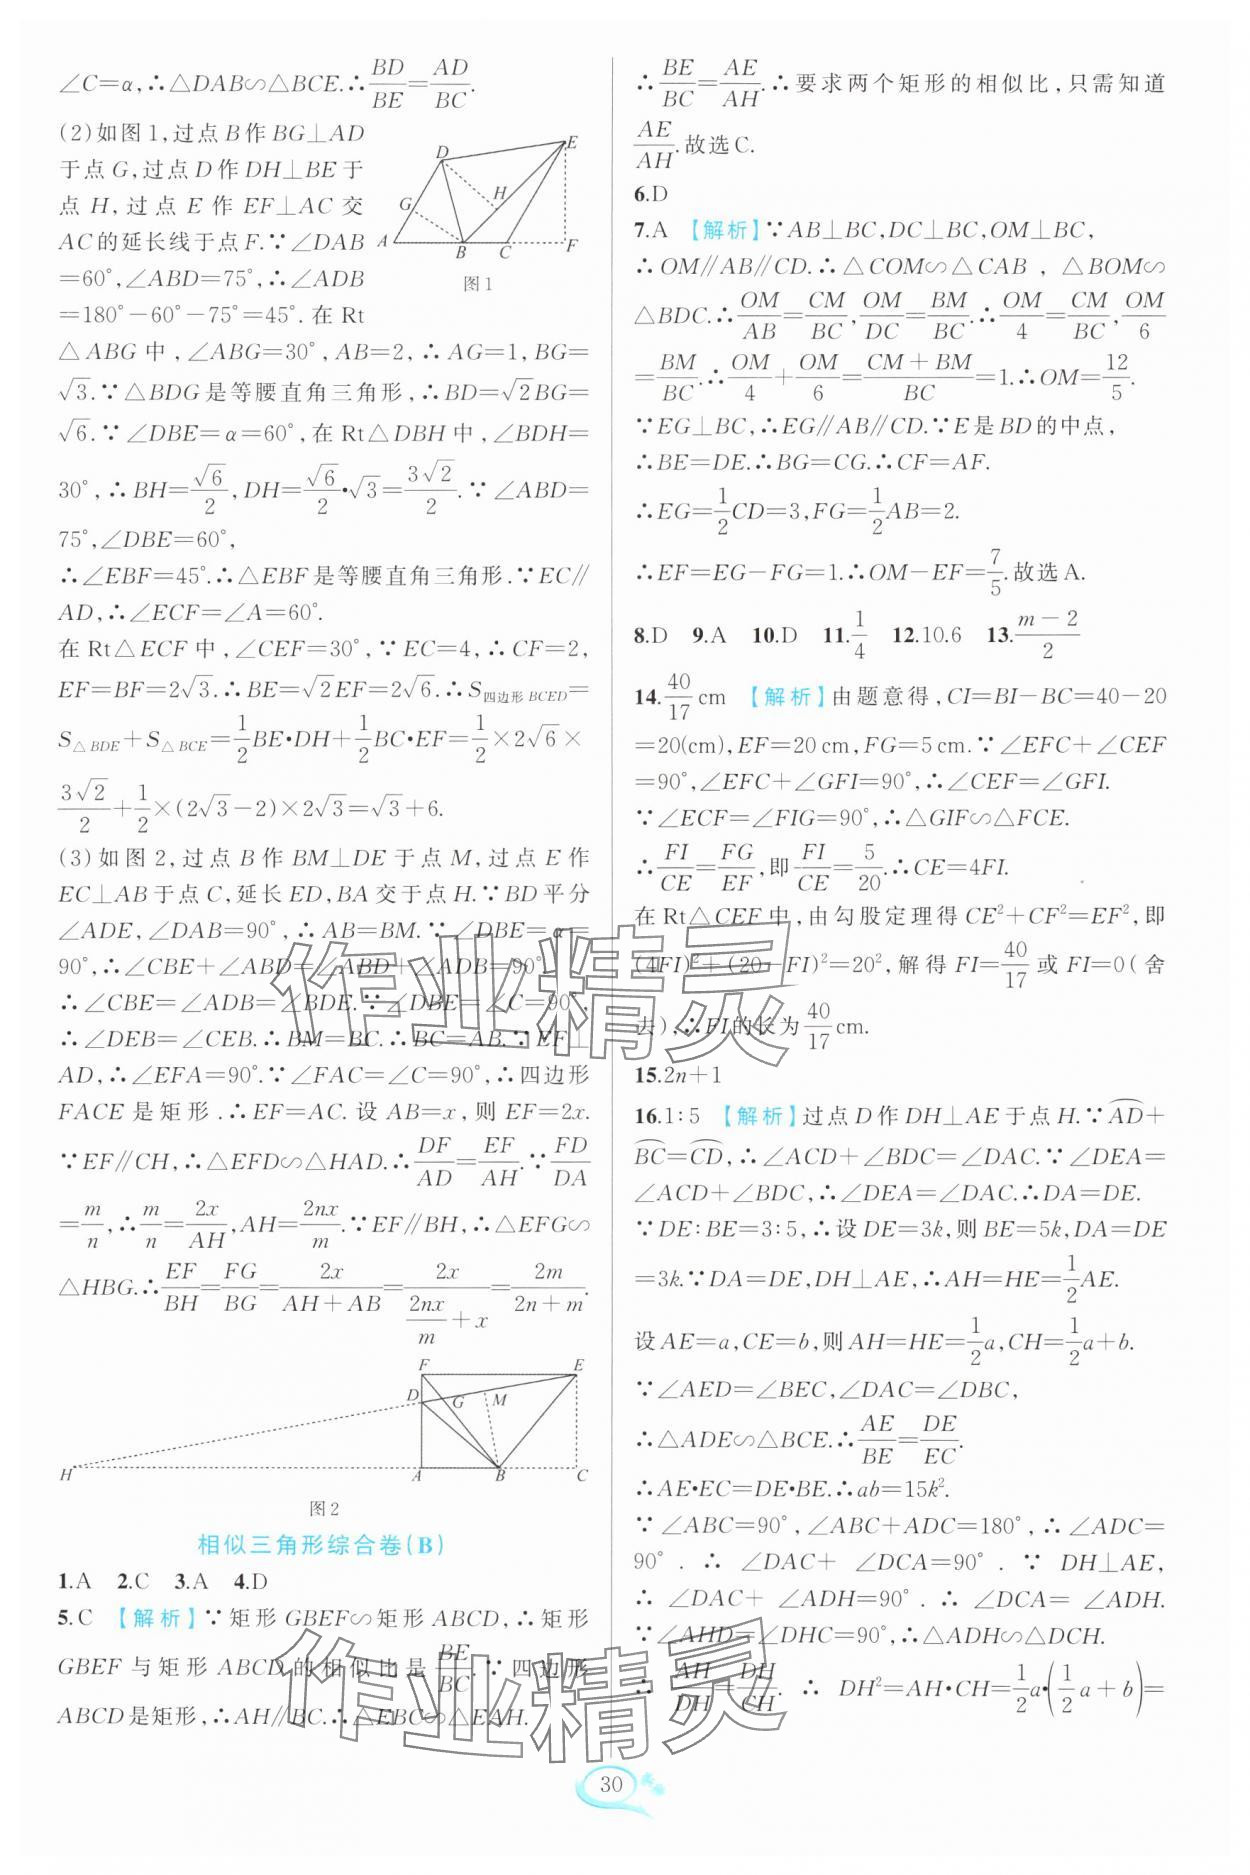 ∠C=α,∴△DAB∽△BCE.∴BD/BE=AD/BC.
(2)如图1,过点B作BG⊥AD
于点G,过点D作DH⊥BE于
点H,过点E作EF⊥AC交
AC的延长线于点F.∵∠DAB
=60°,∠ABD=75°,∴∠ADB
=180°-60°-75°=45°.在Rt
D E G H A B C F
图1
△ABG中,∠ABG=30°,AB=2,∴AG=1,BG=
√3.∵△BDG是等腰直角三角形,∴BD=√2BG=
√6.∵∠DBE=α=60°,在Rt△DBH中,∠BDH=
30°,∴BH=√6/2,DH=√6/2•√3=3√2/2.∵∠ABD=
75°,∠DBE=60°,
∴∠EBF=45°.∴△EBF是等腰直角三角形.∵EC∥
AD,∴∠ECF=∠A=60°.
在Rt△ECF中,∠CEF=30°,∵EC=4,∴CF=2,
EF=BF=2√3.∴BE=√2EF=2√6.∴S四边形BCED=
S△BDE+S△BCE=1/2BE•DH+1/2BC•EF=1/2×2√6×
3√2/2+1/2×(2√3-2)×2√3=√3+6.
(3)如图2,过点B作BM⊥DE于点M,过点E作
EC⊥AB于点C,延长ED,BA交于点H.∵BD平分
∠ADE,∠DAB=90°,∴AB=BM.∵∠DBE=α=
90°,∴∠CBE+∠ABD=∠ABD+∠ADB=90°.
∴∠CBE=∠ADB=∠BDE.∵∠DBE=∠C=90°,
∴∠DEB=∠CEB.∴BM=BC.∴BC=AB.∵EF⊥
AD,∴∠EFA=90°.∵∠FAC=∠C=90°,∴四边形
FACE是矩形.∴EF=AC.设AB=x,则EF=2x.
∵EF∥CH,∴△EFD∽△HAD.∴DF/AD=EF/AH.∵FD/DA
=m/n,∴m/n=2x/AH,AH=2nx/m.∵EF∥BH,∴△EFG∽
△HBG.∴EF/BH=FG/BG=2x/(AH+AB)=2x/(2nx/m+x)=2m/(2n+m).
F E D G M H A B C
图2
相似三角形综合卷(B)
1.A 2.C 3.A 4.D
5.C 【解析】∵矩形GBEF∽矩形ABCD,∴矩形
GBEF与矩形ABCD的相似比是BE/BC.∵四边形
ABCD是矩形,∴AH∥BC.∴△EBC∽△EAH.
∴BE/BC=AE/AH.∴要求两个矩形的相似比,只需知道
AE/AH.故选C.
6.D
7.A 【解析】∵AB⊥BC,DC⊥BC,OM⊥BC,
∴OM∥AB∥CD.∴△COM∽△CAB,△BOM∽
△BDC.∴OM/AB=CM/BC,OM/DC=BM/BC.∴OM/4=CM/BC,OM/6
=BM/BC.∴OM/4+OM/6=(CM+BM)/BC=1.∴OM=12/5.
∵EG⊥BC,∴EG∥AB∥CD.∵E是BD的中点,
∴BE=DE.∴BG=CG.∴CF=AF.
∴EG=1/2CD=3,FG=1/2AB=2.
∴EF=EG-FG=1.∴OM-EF=7/5.故选A.
8.D 9.A 10.D 11.1/4 12.10.6 13.(m-2)/2
14.40/17cm 【解析】由题意得,CI=BI-BC=40-20
=20(cm),EF=20 cm,FG=5 cm.∵∠EFC+∠CEF
=90°,∠EFC+∠GFI=90°,∴∠CEF=∠GFI.
∵∠ECF=∠FIG=90°,∴△GIF∽△FCE.
∴FI/CE=FG/EF,即FI/CE=5/20.∴CE=4FI.
在Rt△CEF中,由勾股定理得CE²+CF²=EF²,即
(4FI)²+(20-FI)²=20²,解得FI=40/17或FI=0(舍
去),∴FI的长为40/17cm.
15.2n+1
16.1∶5 【解析】过点D作DH⊥AE于点H.∵A͡D+
B͡C=C͡D,∴∠ACD+∠BDC=∠DAC.∵∠DEA=
∠ACD+∠BDC,∴∠DEA=∠DAC.∴DA=DE.
∵DE∶BE=3∶5,∴设DE=3k,则BE=5k,DA=DE
=3k.∵DA=DE,DH⊥AE,∴AH=HE=1/2AE.
设AE=a,CE=b,则AH=HE=1/2a,CH=1/2a+b.
∵∠AED=∠BEC,∠DAC=∠DBC,
∴△ADE∽△BCE.∴AE/BE=DE/EC.
∴AE•EC=DE•BE.∴ab=15k².
∵∠ABC=90°,∠ABC+ADC=180°,∴∠ADC=
90°.∴∠DAC+∠DCA=90°.∵DH⊥AE,
∴∠DAC+∠ADH=90°.∴∠DCA=∠ADH.
∵∠AHD=∠DHC=90°,∴△ADH∽△DCH.
∴AH/DH=DH/CH.∴DH²=AH•CH=1/2a•(1/2a+b)=
30
作业精灵
作业精灵